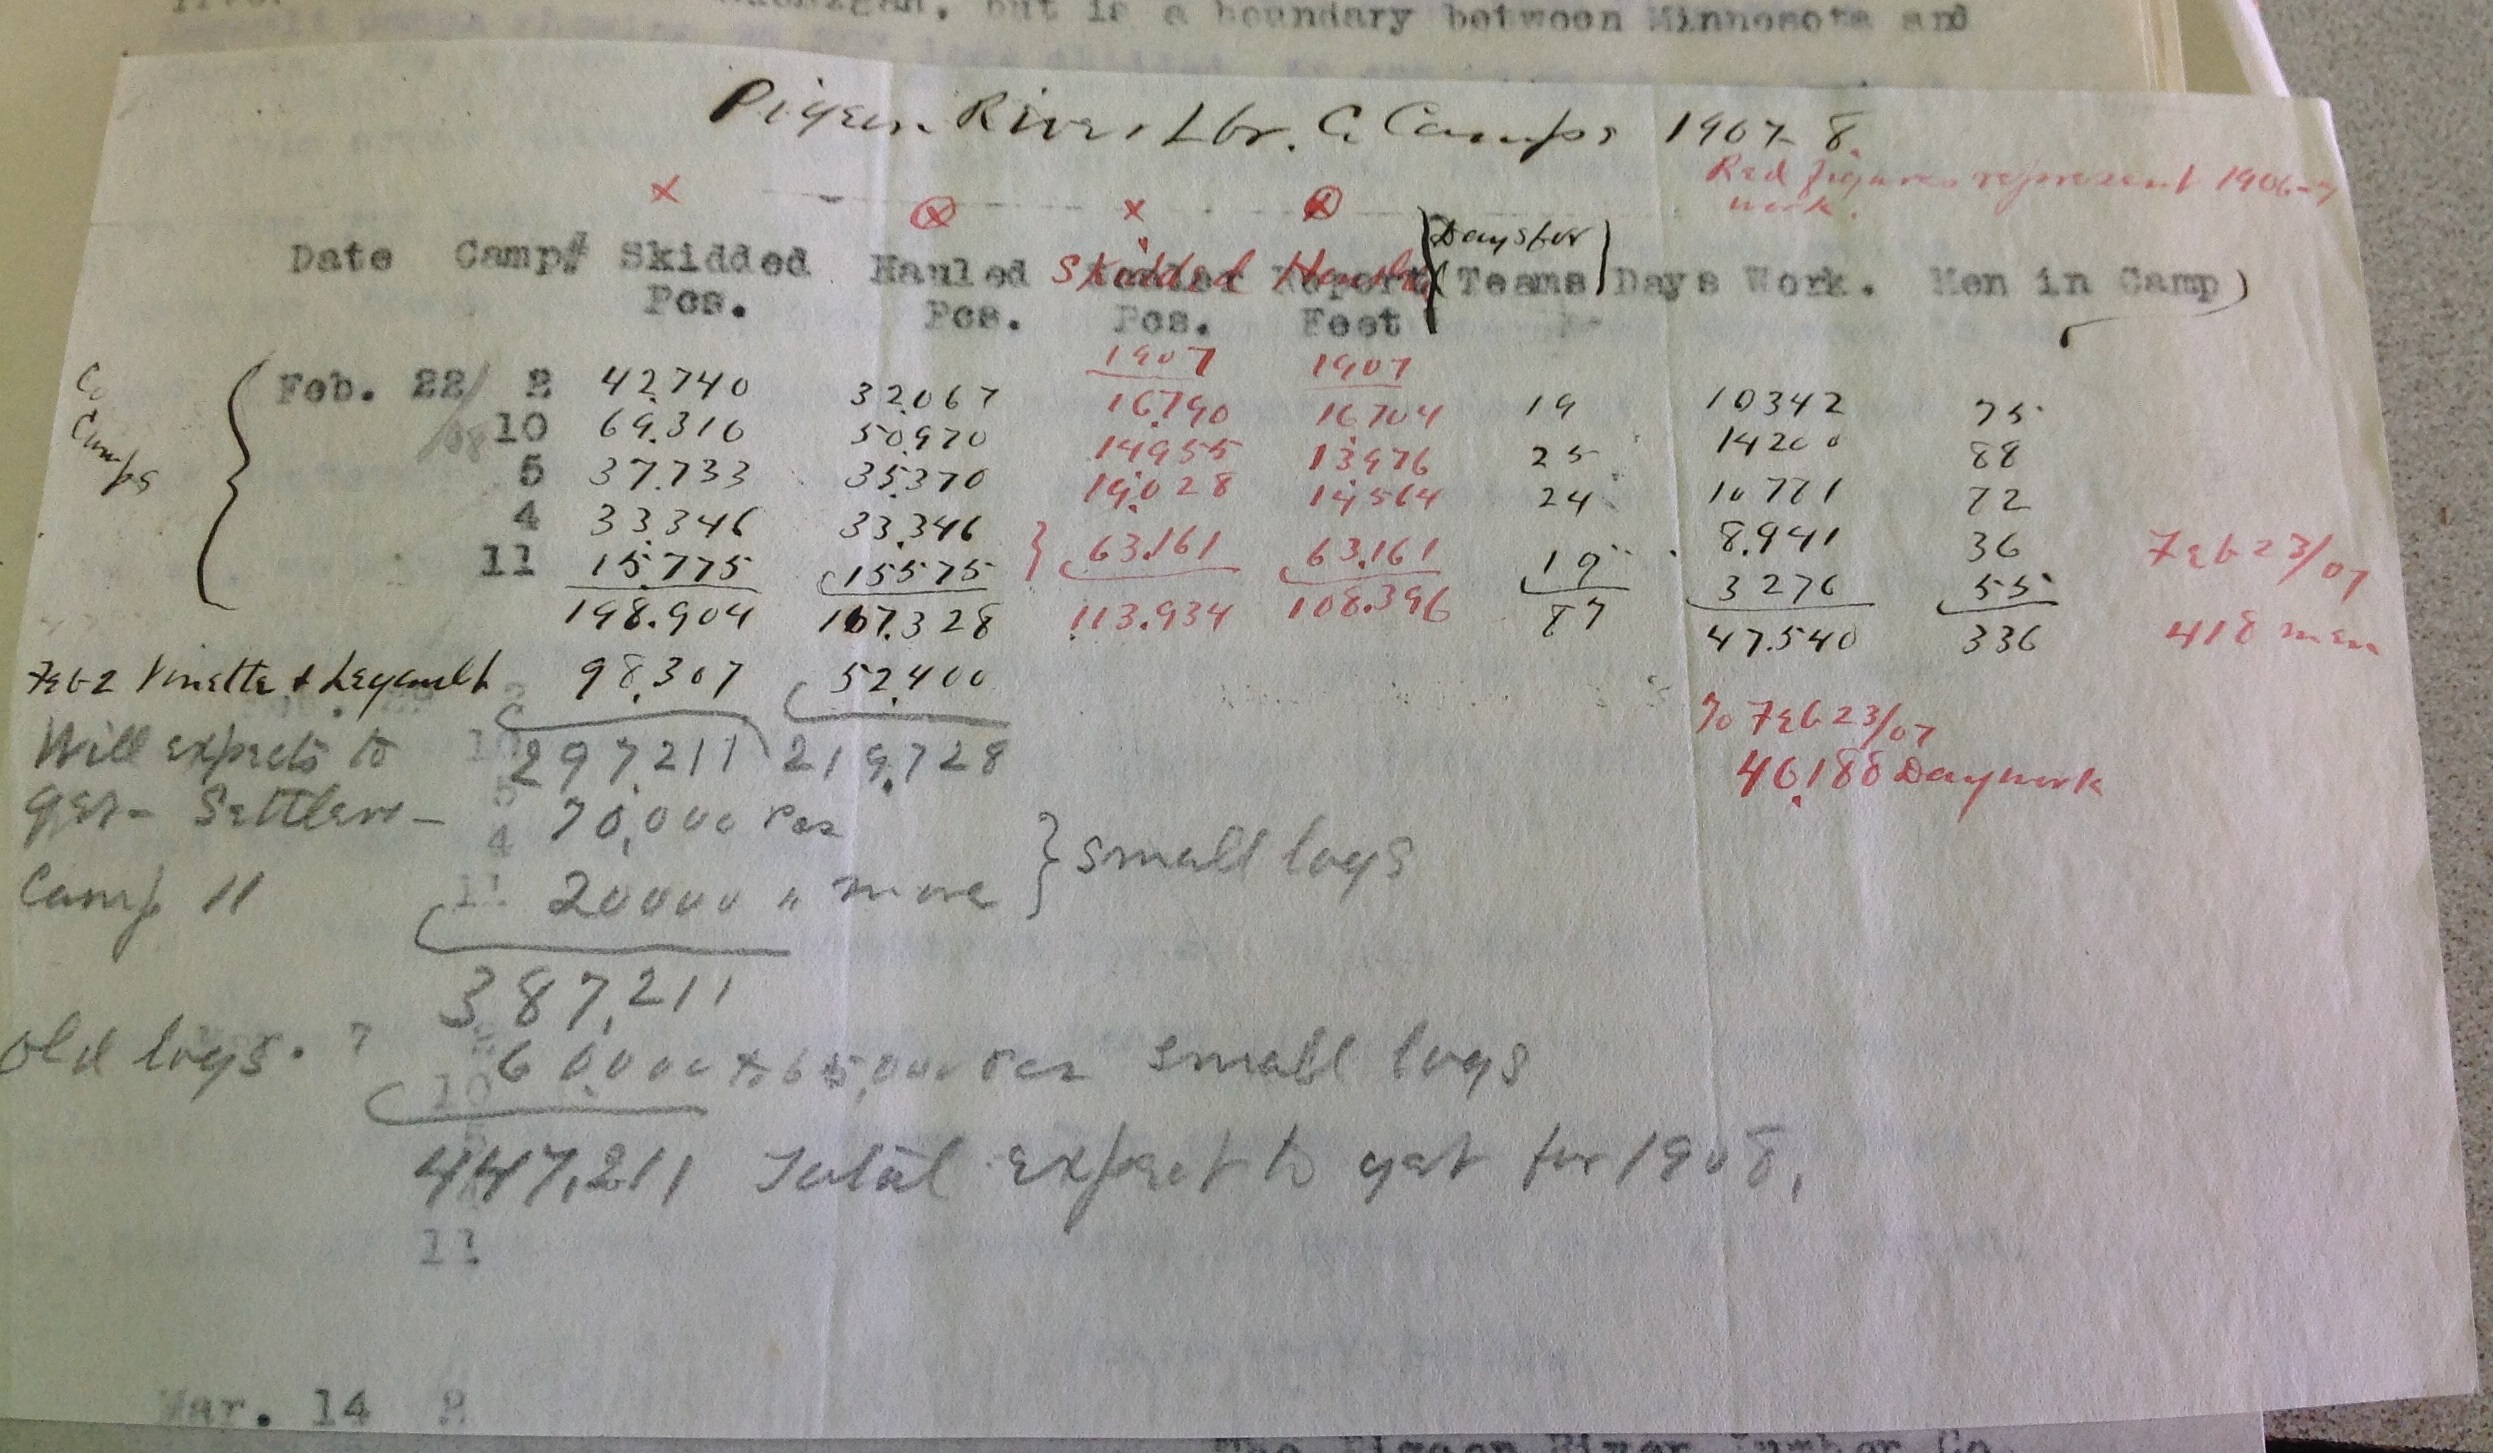 but is a boundary between Minnesota and
Pigeon River Lbr. Co Camps 1907-8.
Red figures represent 1906-7
work.
Date Camp# Skidded Pcs. Hauled Pcs. Skidded Pcs. Hauled Feet (Days for Teams) Days Work. Men in Camp)
1907 1907
Co Camps
Feb. 22/08 2 42.740 32.067 16.790 16.704 19 10342 75
10 69.310 50.970 14.955 13.976 25 14200 88
5 37.733 35.370 19.028 14.564 24 10771 72
4 33.346 33.346 63.161 63.161 8.941 36
11 15.775 15575 19 3276 55
Feb 23/07
198.904 167.328 113.934 108.396 87 47.540 336
418 men
Feb 2 Vinette & Legault 98.307 52.400
To Feb 23/07
46,188 Day work
297,211 219.728
Will expects to
get - Settlers - 70,000 Pcs
Camp 11 20000 " more } small logs
387,211
Old logs. ? 60,000 to 65,000 Pcs small logs
447,211 Total expect to get for 1908.
11
Mar. 14 2
The Pigeon River Lumber Co.